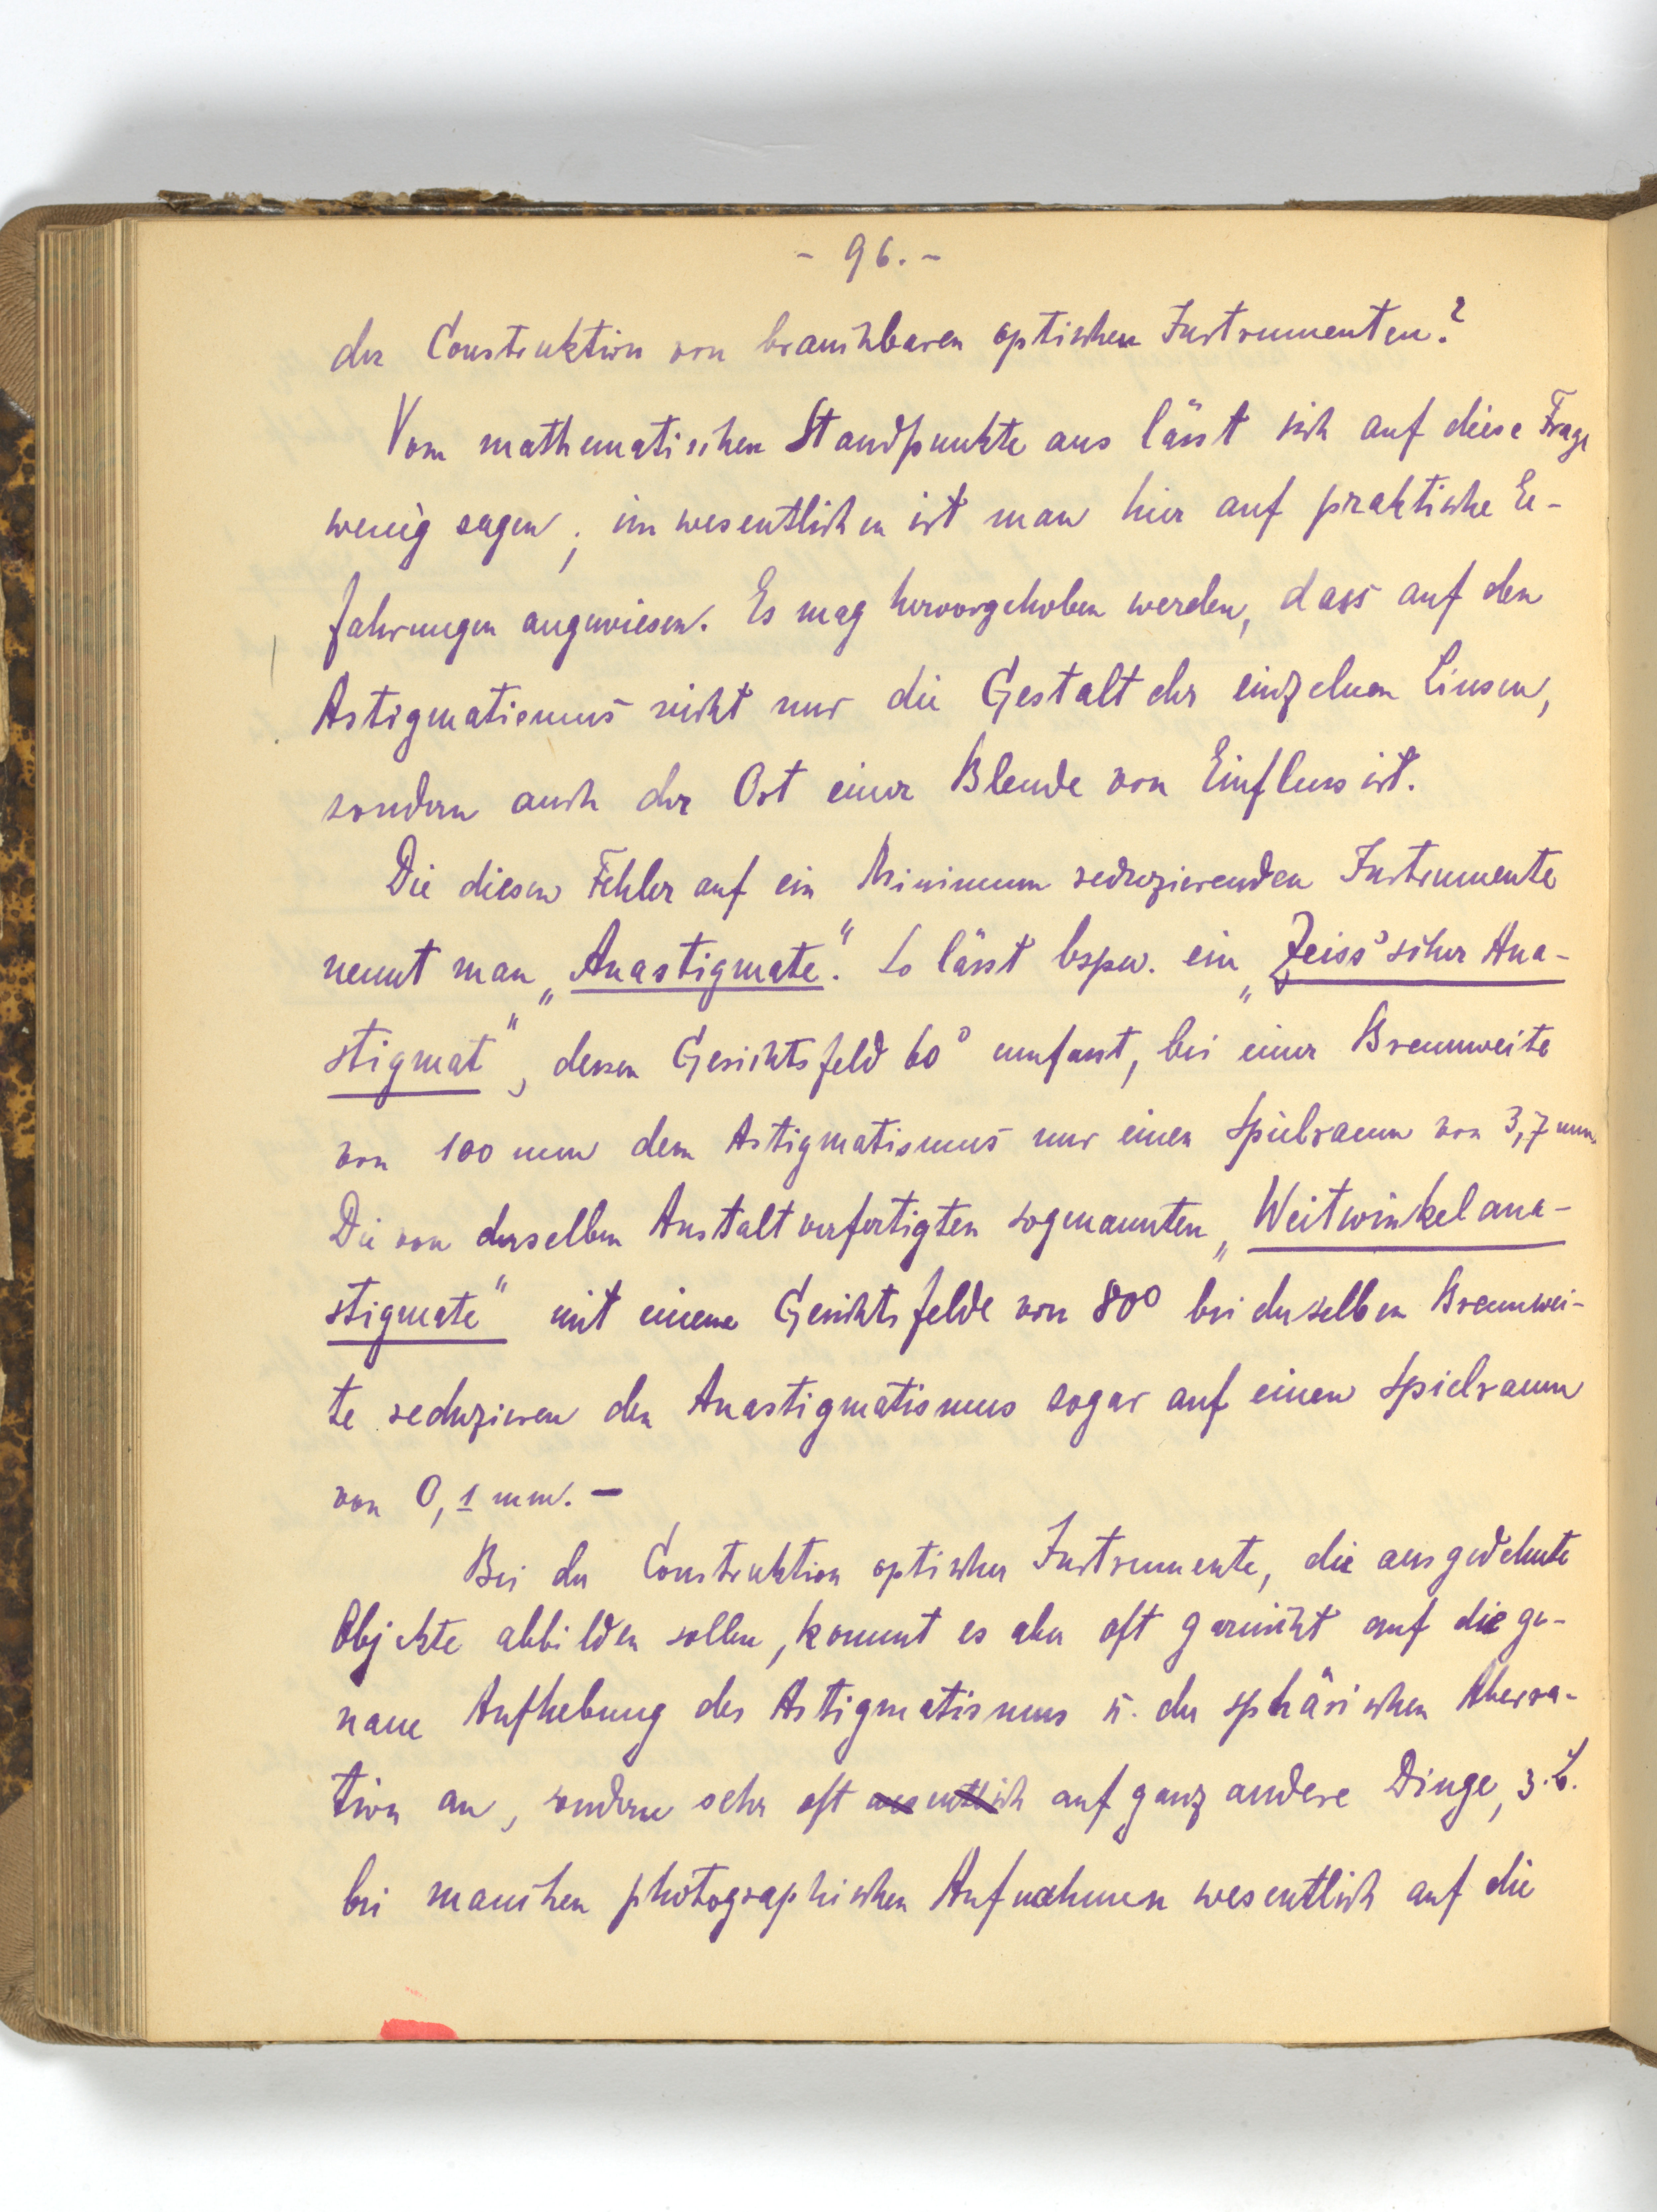 - 96. -
der Construktion von brauchbaren optischen Instrumenten?
Vom mathematischen Standpunkte aus lässt sich auf diese Frage
wenig sagen; im wesentlichen ist man hier auf praktische Er-
fahrungen angewiesen. Es mag hervorgehoben werden, dass auf den
Astigmatismus nicht nur die Gestalt der einzelnen Linsen,
sondern auch der Ort einer Blende von Einfluss ist.
Die diesen Fehler auf ein Minimum reduzierenden Instrumente
nennt man „Anastigmate“. So lässt bspw. ein „Zeiss'scher Ana-
stigmat“, dessen Gesichtsfeld 60° umfasst, bei einer Brennweite
von 100 mm dem Astigmatismus nur einen Spielraum von 3,7 mm.
Die von derselben Anstalt verfertigten sogenannten „Weitwinkelana-
stigmate“ mit einem Gesichtsfelde von 80° bei derselben Brennwei-
te reduzieren den Anastigmatismus sogar auf einen Spielraum
von 0,1 mm. -
Bei der Construktion optischer Instrumente, die ausgedehnte
Objekte abbilden sollen, kommt es aber oft garnicht auf die ge-
naue Aufhebung des Astigmatismus u. der sphärischen Aberra-
tion an, sondern sehr oft wesentlich auf ganz andere Dinge, z.B.
bei manchen photographischen Aufnahmen wesentlich auf die